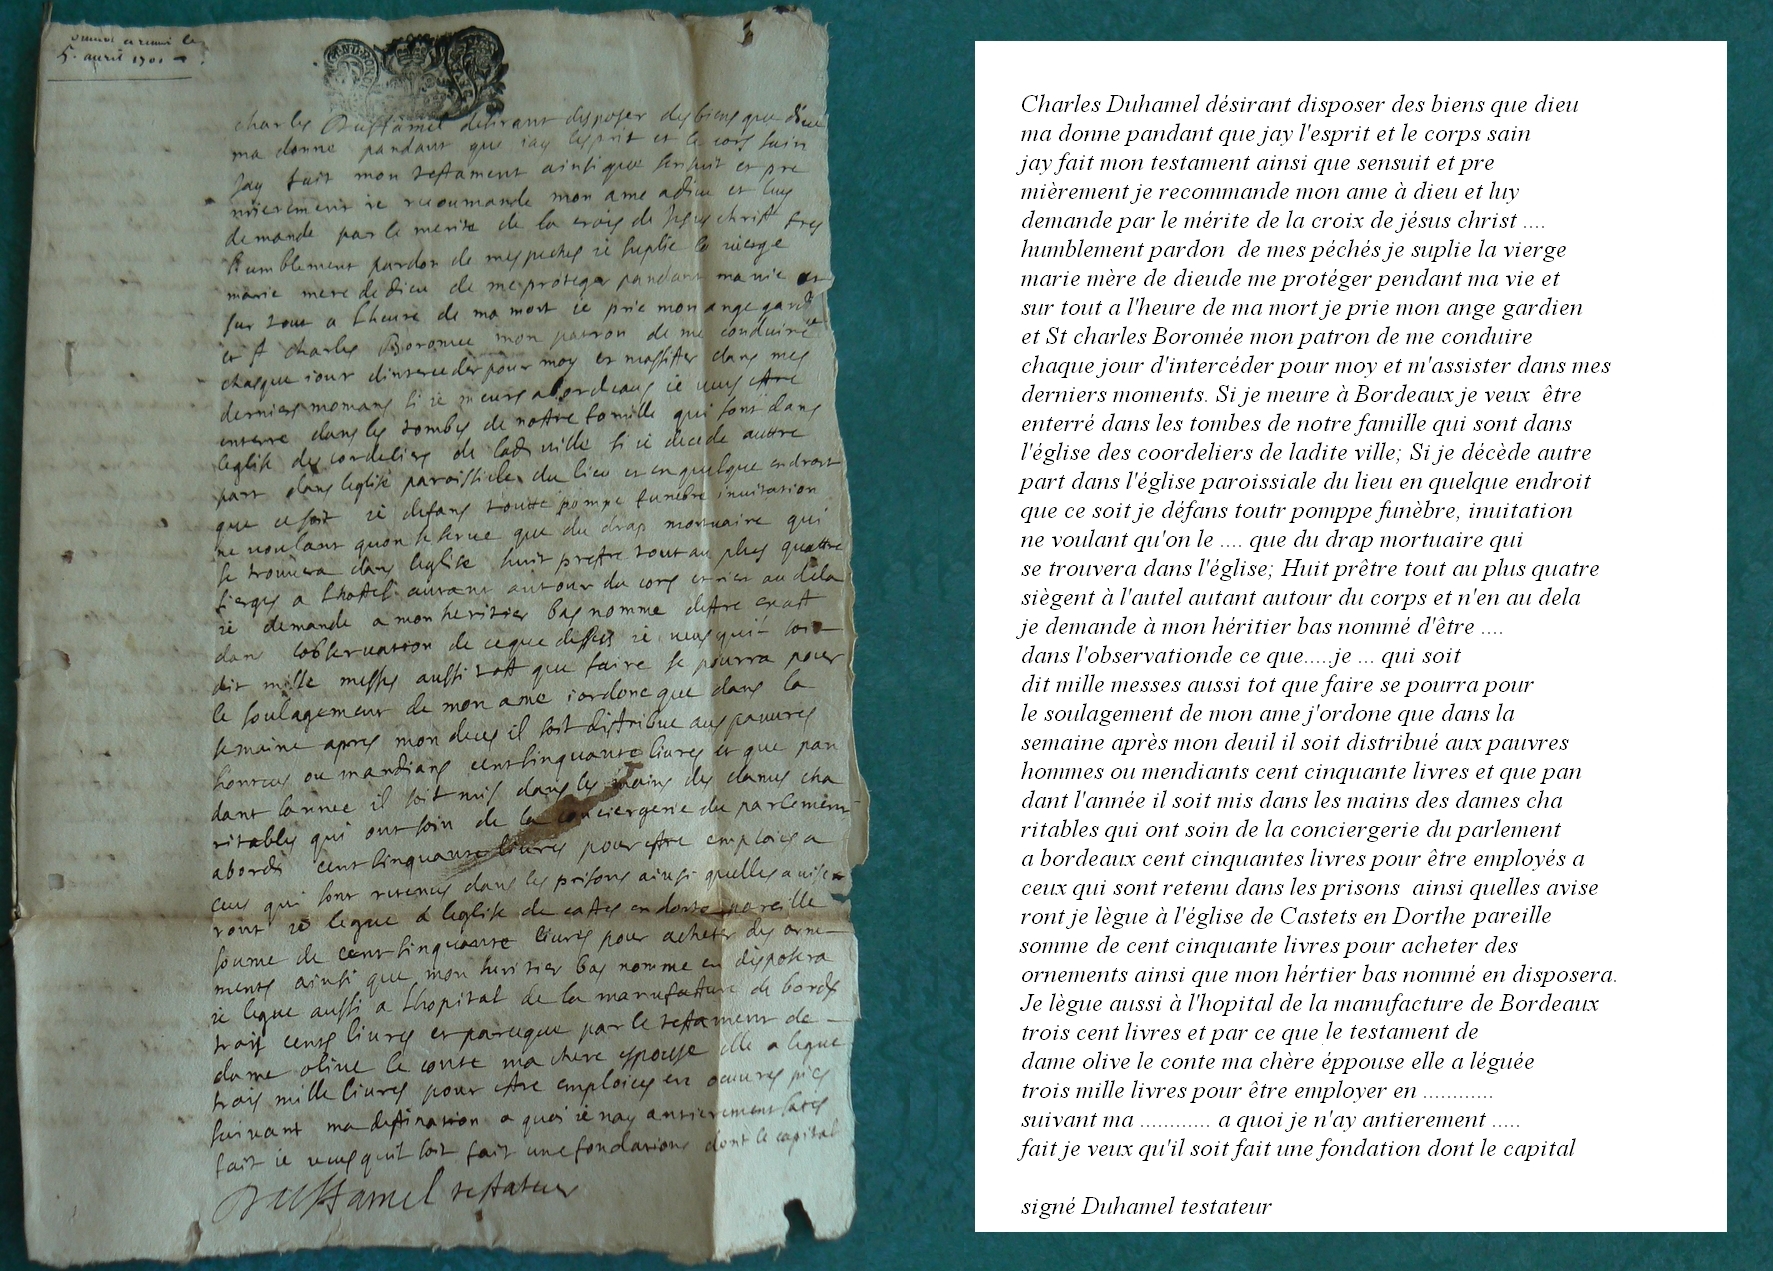 5. auril 1701
charles Duhamel desirant disposer des biens que dieu
ma donne pandant que iay lesprit et le cors sain
Jay fait mon testament ainsi que sensuit et pre
mierement ie recoumande mon ame a dieu et luy
demande par le merite de la crois de Jesus christ tres
humblement pardon de mes peches ie suplie la vierge
marie mere de dieu de me proteger pandant ma vie et
sur tout a lheure de ma mort ie prie mon ange gard
et st charles Boromee mon patron de me conduire
chasque iour dinterceder pour moy et massister dans mes
derniers momans si ie meurs a bordeaus ie veus estre
enterre dans les tombes de nostre famille qui sont dans
leglise des cordeliers de lad ville si ie decede auttre
part dans leglise paroissiale du lieu et en quelque endroit
que ce soit ie defans toutte pompe funebre inuitation
ne voulant quon se serue que du drap mortuaire qui
se trouuera dans leglise huit prestre tout au plus quattre
sierges a lhostel autant autour du cors et rien au dela
ie demande a mon heritier bas nomme destre exact
dans lobseruation de ce que dessus ie veus quil soit
dit mille messes aussi tost que faire se pourra pour
le soulagement de mon ame iordone que dans la
semaine apres mon deces il soit distribue aus pauures
honteus ou mandians cent sinquante liures et que pan
dant lannee il soit mis dans les mains des dames cha
ritables qui ont soin de la conciergerie du parlement
a bordx cent sinquante liures pour estre emploies a
ceus qui sont retenus dans les prisons ainsi quelles auise
ront ie legue a leglise de castes en dorte pareille
soume de cent sinquante liures pour acheter des orne
ments ainsi que mon heritier bas nomme en disposera
ie legue aussi a lhopital de la manufacture de bordx
trois cens liures et parceque par le testament de
dame oliue le conte ma chere espouse elle a legue
trois mille liures pour estre emploiees en oeuures pies
suiuant ma destination a quoi ie nay antierement
fait ie veus quil soit fait une fondations dont le capital
Duhamel testateur
Charles Duhamel désirant disposer des biens que dieu
ma donne pandant que jay l'esprit et le corps sain
jay fait mon testament ainsi que sensuit et pre
mièrement je recommande mon ame à dieu et luy
demande par le mérite de la croix de jésus christ ....
humblement pardon de mes péchés je suplie la vierge
marie mère de dieude me protéger pendant ma vie et
sur tout a l'heure de ma mort je prie mon ange gardien
et St charles Boromée mon patron de me conduire
chaque jour d'intercéder pour moy et m'assister dans mes
derniers moments. Si je meure à Bordeaux je veux être
enterré dans les tombes de notre famille qui sont dans
l'église des coordeliers de ladite ville; Si je décède autre
part dans l'église paroissiale du lieu en quelque endroit
que ce soit je défans toutr pomppe funèbre, inuitation
ne voulant qu'on le .... que du drap mortuaire qui
se trouvera dans l'église; Huit prêtre tout au plus quatre
siègent à l'autel autant autour du corps et n'en au dela
je demande à mon héritier bas nommé d'être ....
dans l'observationde ce que.....je ... qui soit
dit mille messes aussi tot que faire se pourra pour
le soulagement de mon ame j'ordone que dans la
semaine après mon deuil il soit distribué aux pauvres
hommes ou mendiants cent cinquante livres et que pan
dant l'année il soit mis dans les mains des dames cha
ritables qui ont soin de la conciergerie du parlement
a bordeaux cent cinquantes livres pour être employés a
ceux qui sont retenu dans les prisons ainsi quelles avise
ront je lègue à l'église de Castets en Dorthe pareille
somme de cent cinquante livres pour acheter des
ornements ainsi que mon hértier bas nommé en disposera.
Je lègue aussi à l'hopital de la manufacture de Bordeaux
trois cent livres et par ce que le testament de
dame olive le conte ma chère éppouse elle a léguée
trois mille livres pour être employer en ............
suivant ma ............ a quoi je n'ay antierement .....
fait je veux qu'il soit fait une fondation dont le capital
signé Duhamel testateur